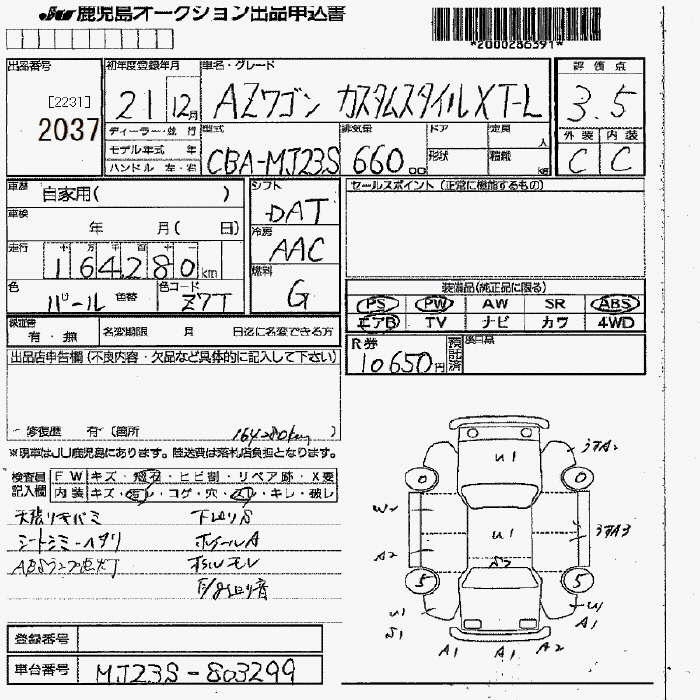 JU 鹿児島オークション出品申込書
*2000286391*
出品番号
[2231]
2037
初年度登録年月
21 12月
車名・グレード
AZワゴン カスタムスタイル XT-L
評価点
3.5
ディーラー・並 行
モデル年式 年
ハンドル 左・右
型式
CBA-MJ23S
排気量
660 cc
ドア
形状
定員
人
積載
kg
外装 内装
C C
車歴
自家用( )
車検
年 月( 日)
走行
十 万 千 百 十 一
164280km
色
パール
色替
色コード
Z7T
シフト
DAT
冷房
AAC
燃料
G
セールスポイント (正常に機能するもの)
装備品(純正品に限る)
PS PW AW SR ABS
エアB TV ナビ カワ 4WD
保証書
有・無
名変期限 月 日迄に名変できる方
R券
10650円
預託済
出品店申告欄 (不良内容・欠品など具体的に記入して下さい)
修復歴 有 (箇所 )
164280km
※現車はJU鹿児島にあります。陸送費は落札店負担となります。
検査員
記入欄
FW キズ・飛石・ヒビ割・リペア跡・X要
内装 キズ・汚レ・コゲ・穴・スレ・キレ・破レ
シートシミ・ヘタリ
ABSランプ点灯
下回りS
ホイールA
オイルモレ
登録番号
車台番号
MJ23S-803299
U1
U1
S2
0
0
5
5
W2
A2
U1
S1
A1
A1
A2
U1
A1